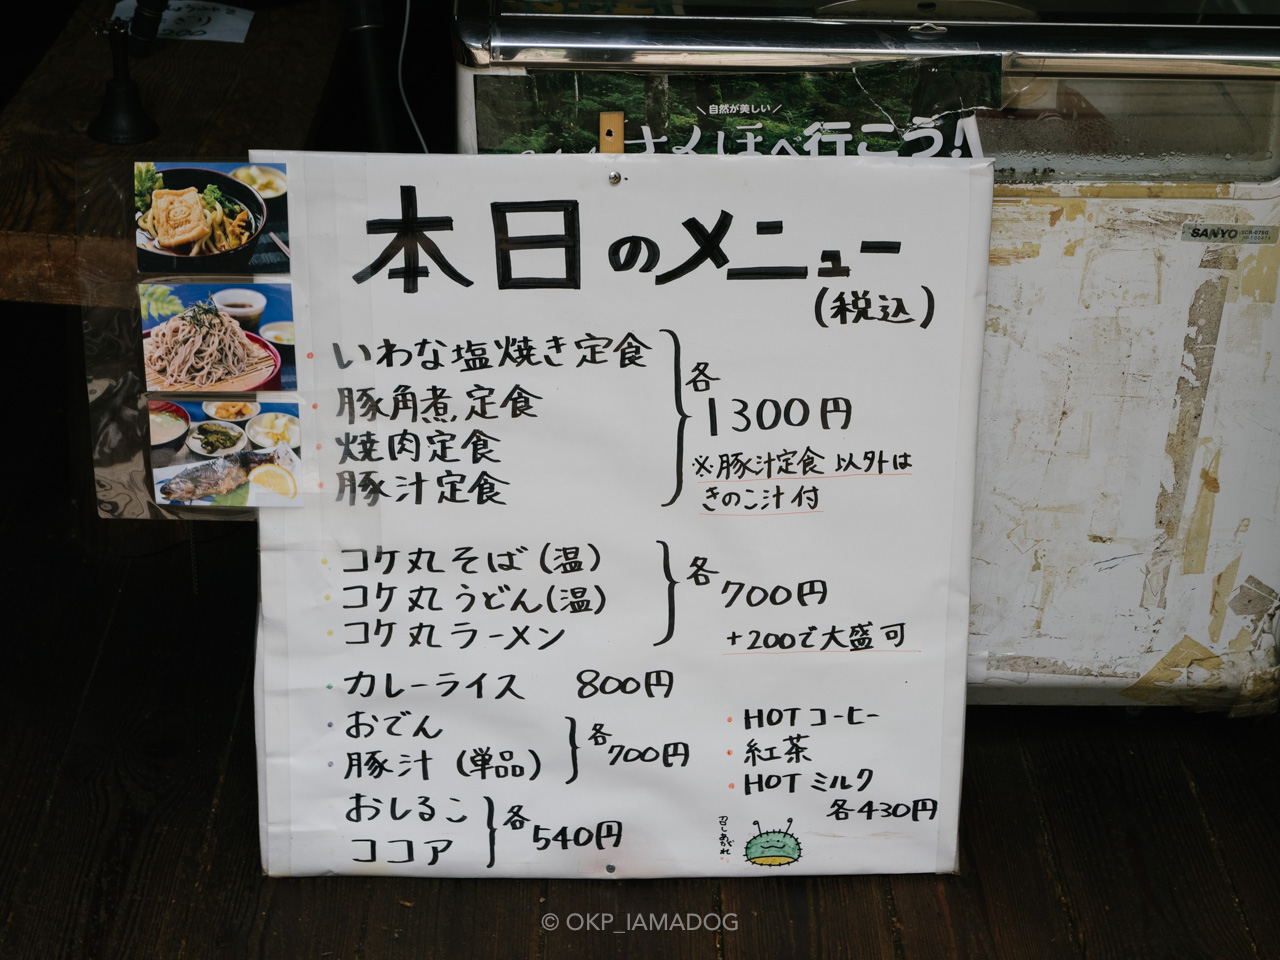 自然が美しい
さくほへ行こう!
SANYO
本日のメニュー
(税込)
・いわな塩焼き定食
・豚角煮定食
・焼肉定食
・豚汁定食
各1300円
※豚汁定食以外は
きのこ汁付
・コケ丸そば(温)
・コケ丸うどん(温)
・コケ丸ラーメン
各700円
+200で大盛可
・カレーライス 800円
・おでん
・豚汁(単品)
各700円
おしるこ
ココア
各540円
・HOTコーヒー
・紅茶
・HOTミルク
各430円
召しあがれ
© OKP_IAMADOG